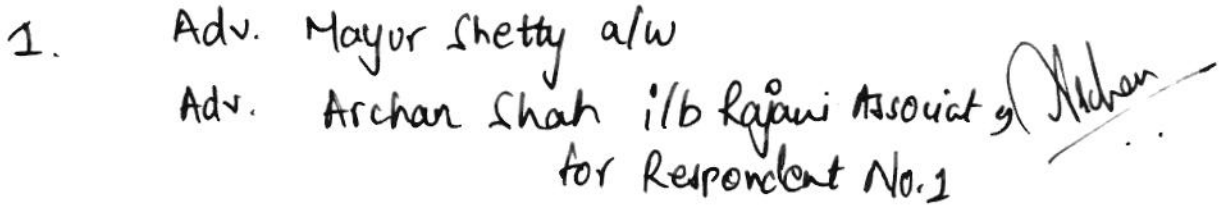 1. Adv. Mayur Shetty a/w
Adv. Archan Shah i/b Rajani Associates Archan
for Respondent No.1